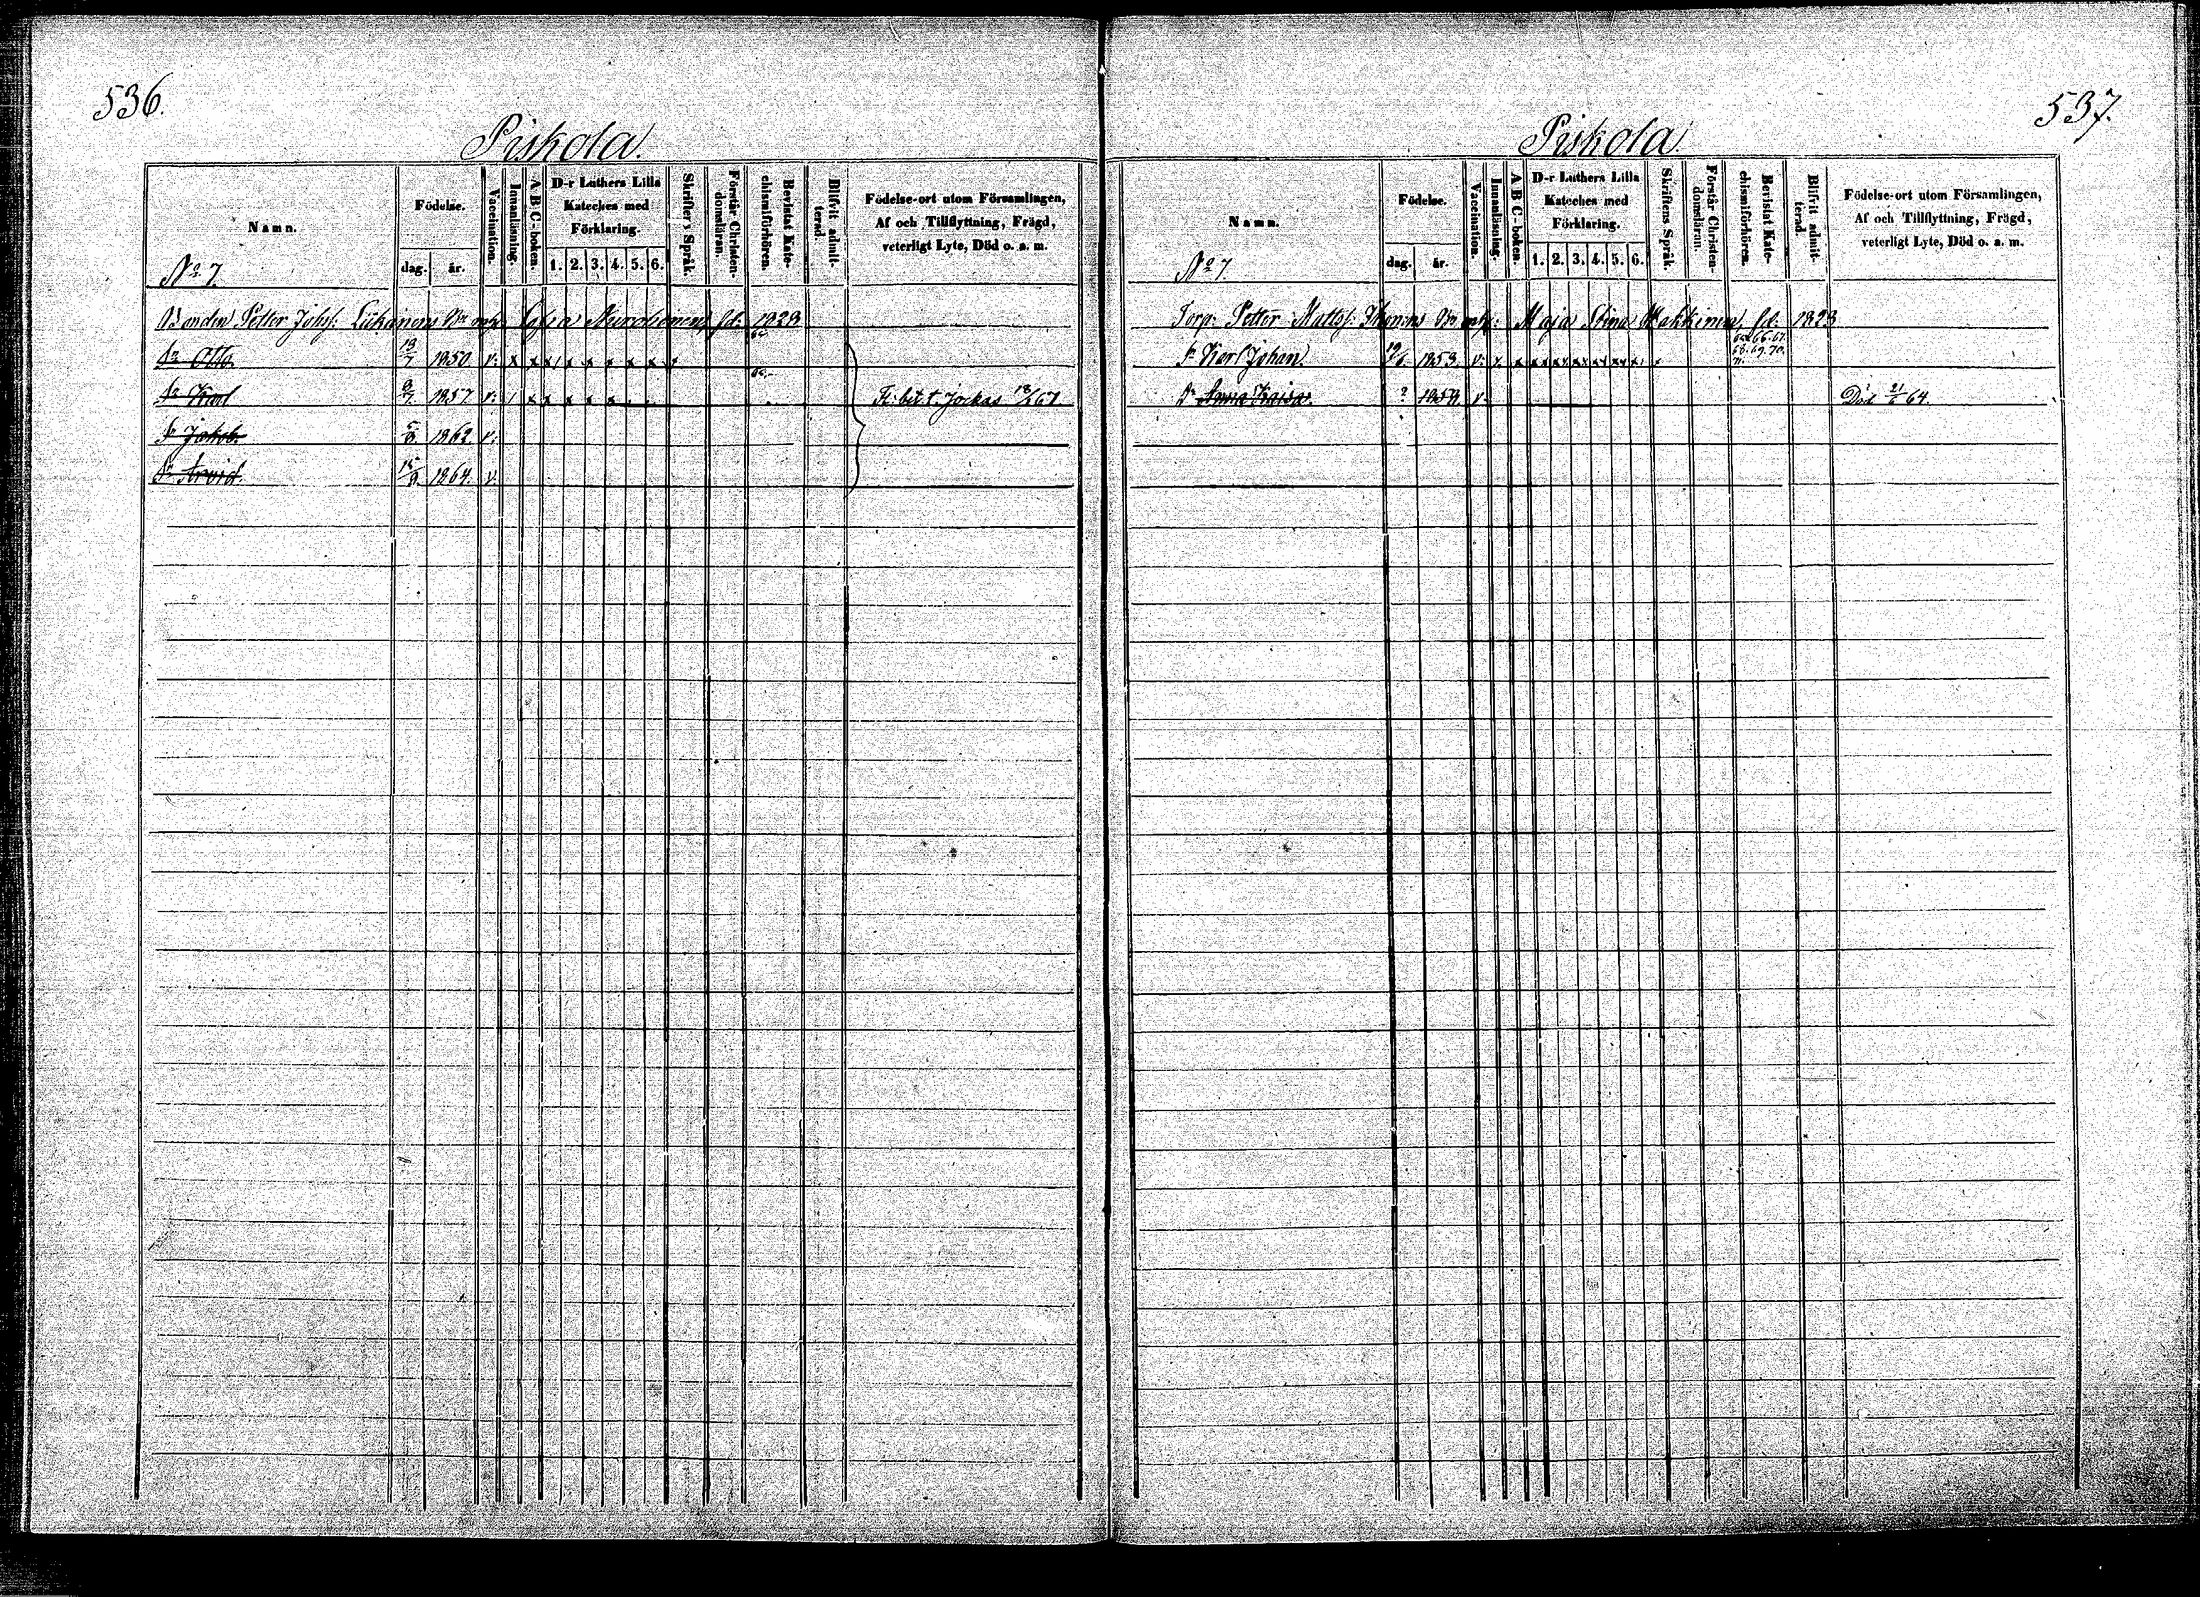 536.
Piskola.
Namn.
Födelse.
dag.
år.
Vaccination.
Innanläsning.
A B C-boken.
D-r Luthers Lilla
Kateches med
Förklaring.
1. 2. 3. 4. 5. 6.
Skriftens Språk.
Förstår Christen-
domsläran.
Bevistat Kate-
chismiförhören.
Blifvit admit-
terad.
Födelse-ort utom Församlingen,
Af och Tillflyttning, Frägd,
veterligt Lyte, Död o. a. m.
No 7.
Bonden Petter Johss: Liikanens Sofia fd: 1823
Sn Otto 1850. v: x x x x x x x x
Sn Karl 1857 v: x x x x x
F. bet. t. Jockas 67
Sn Jakob 1862 v:
Sn Arvid. 1864. v.
537.
Piskola
Namn.
Födelse.
dag.
år.
Vaccination.
Innanläsning.
A B C-boken.
D-r Luthers Lilla
Kateches med
Förklaring.
1. 2. 3. 4. 5. 6.
Skriftens Språk.
Förstår Christen-
domsläran.
Bevistat Kate-
chismiförhören.
Blifvit admit-
terad.
Födelse-ort utom Församlingen,
Af och Tillflyttning, Frägd,
veterligt Lyte, Död o. a. m.
No 7.
Torp: Petter Matts: Maja Stina Makkinen, fd: 1823
Karl Johan 1853. v: 66. 67.
68. 69. 70.
71.
Dr Anna Kaisa. ? 1859. v Död 21/6 64.